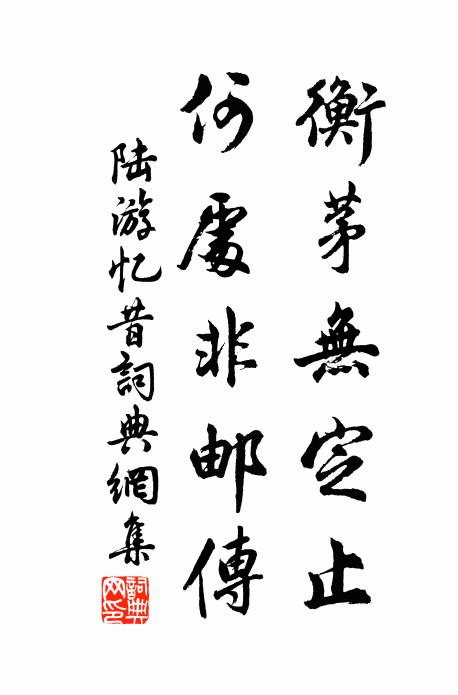 衡茅無定止
何處非邮傳
陆游忆昔詞典網集
詞典網印